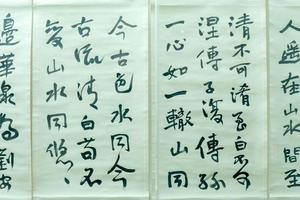 在山水間至
清不可淆至白不可
涅傳子復傳孫
一心如一轍山同
今古色水同今
古流清白苟不
變山水同悠々
邊華泉為劉安